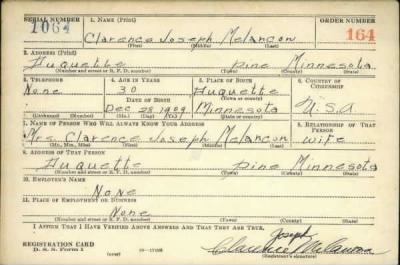 SERIAL NUMBER 1. NAME (Print) ORDER NUMBER
1064 Clarence Joseph Melancon 164
(First) (Middle) (Last)
2. ADDRESS (Print)
Duquette Pine Minnesota
(Number and street or R. F. D. number) (Town) (County) (State)
3. TELEPHONE 4. AGE IN YEARS 5. PLACE OF BIRTH 6. COUNTRY OF CITIZENSHIP
None 30 Duquette
DATE OF BIRTH (Town or county)
Dec 28 1909 Minnesota U.S.A
(Exchange) (Number) (Mo.) (Day) (Yr.) (State or country)
7. NAME OF PERSON WHO WILL ALWAYS KNOW YOUR ADDRESS 8. RELATIONSHIP OF THAT PERSON
Mrs Clarence Joseph Melancon wife
(Mr., Mrs., Miss) (First) (Middle) (Last)
9. ADDRESS OF THAT PERSON
Duquette Pine Minnesota
(Number and street or R. F. D. number) (Town) (County) (State)
10. EMPLOYER'S NAME
None
11. PLACE OF EMPLOYMENT OR BUSINESS
None
(Number and street or R. F. D. number) (Town) (County) (State)
I AFFIRM THAT I HAVE VERIFIED ABOVE ANSWERS AND THAT THEY ARE TRUE.
Joseph
REGISTRATION CARD Clarence Melancon
D. S. S. Form 1 (over) (Registrant's signature)